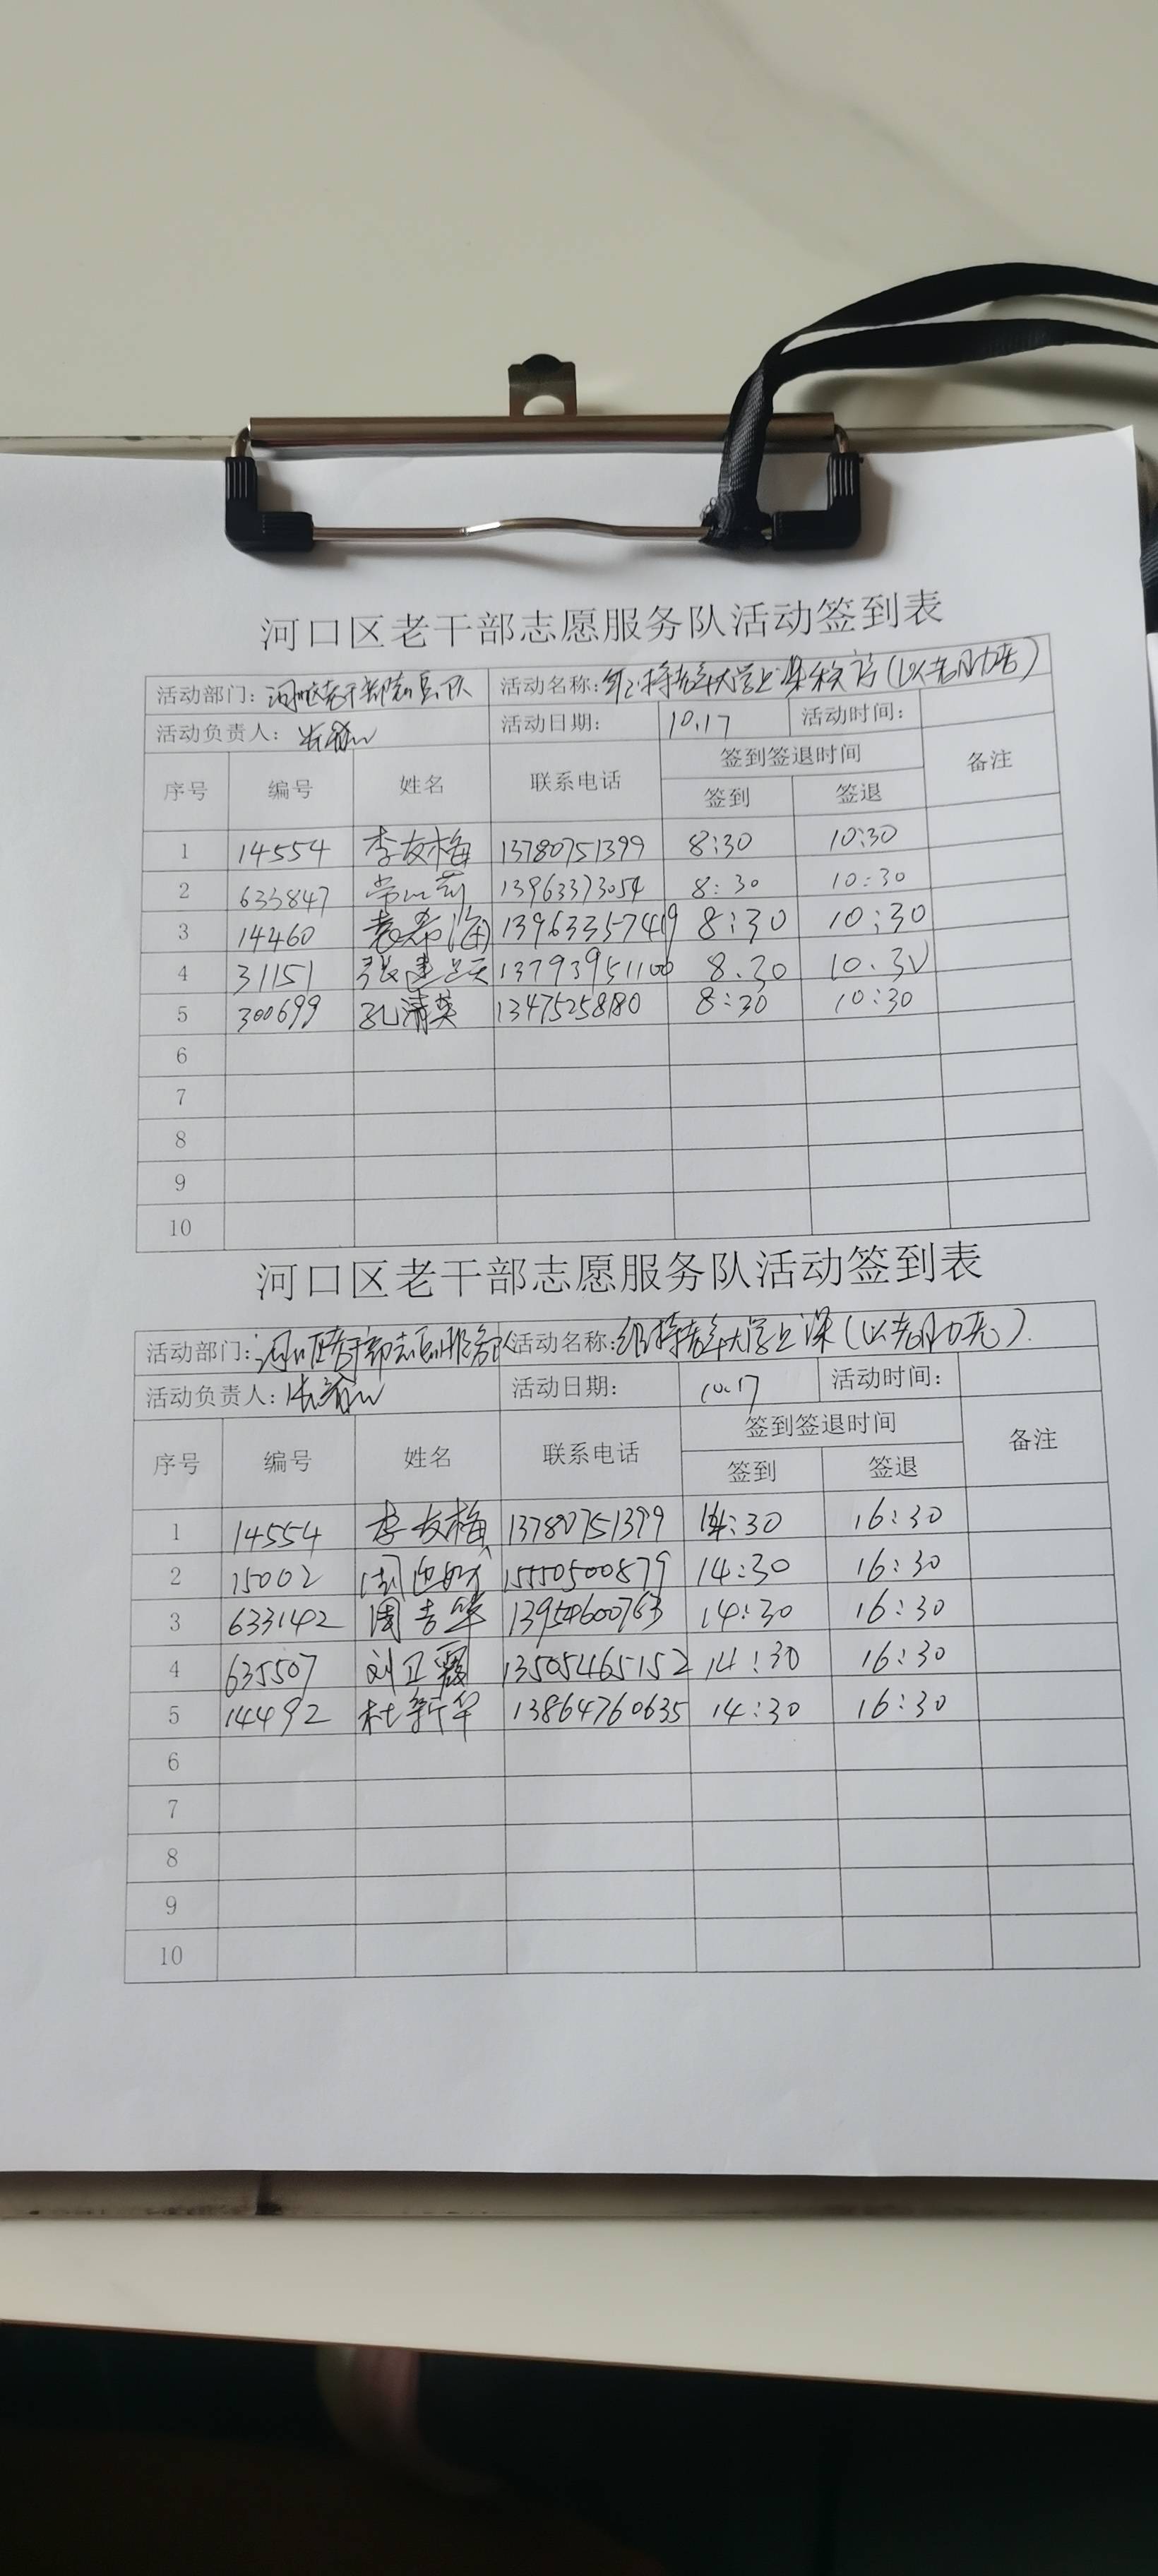 河口区老干部志愿服务队活动签到表
活动部门: 活动名称: 老年大学上课 (以老助老)
活动负责人: 活动日期: 10.17 活动时间:
序号 编号 姓名 联系电话 签到签退时间 备注
签到 签退
1 14554 李友梅 13780751399 8:30 10:30
2 633847 13963373054 8:30 10:30
3 14460 袁希海 8:30 10:30
4 31151 张建 13793951100 8.30 10.30
5 300699 孔清英 13475258180 8:30 10:30
6
7
8
9
10
河口区老干部志愿服务队活动签到表
活动部门: 河口区老干部志愿服务队 活动名称: 维持老年大学上课(以老助老).
活动负责人: 活动日期: 10.17 活动时间:
序号 编号 姓名 联系电话 签到签退时间 备注
签到 签退
1 14554 李友梅 13780751399 14:30 16:30
2 15002 15550500879 14:30 16:30
3 633142 周吉华 13954600763 14:30 16:30
4 635507 刘卫霞 13505465152 14:30 16:30
5 14492 杜新华 13864760635 14:30 16:30
6
7
8
9
10